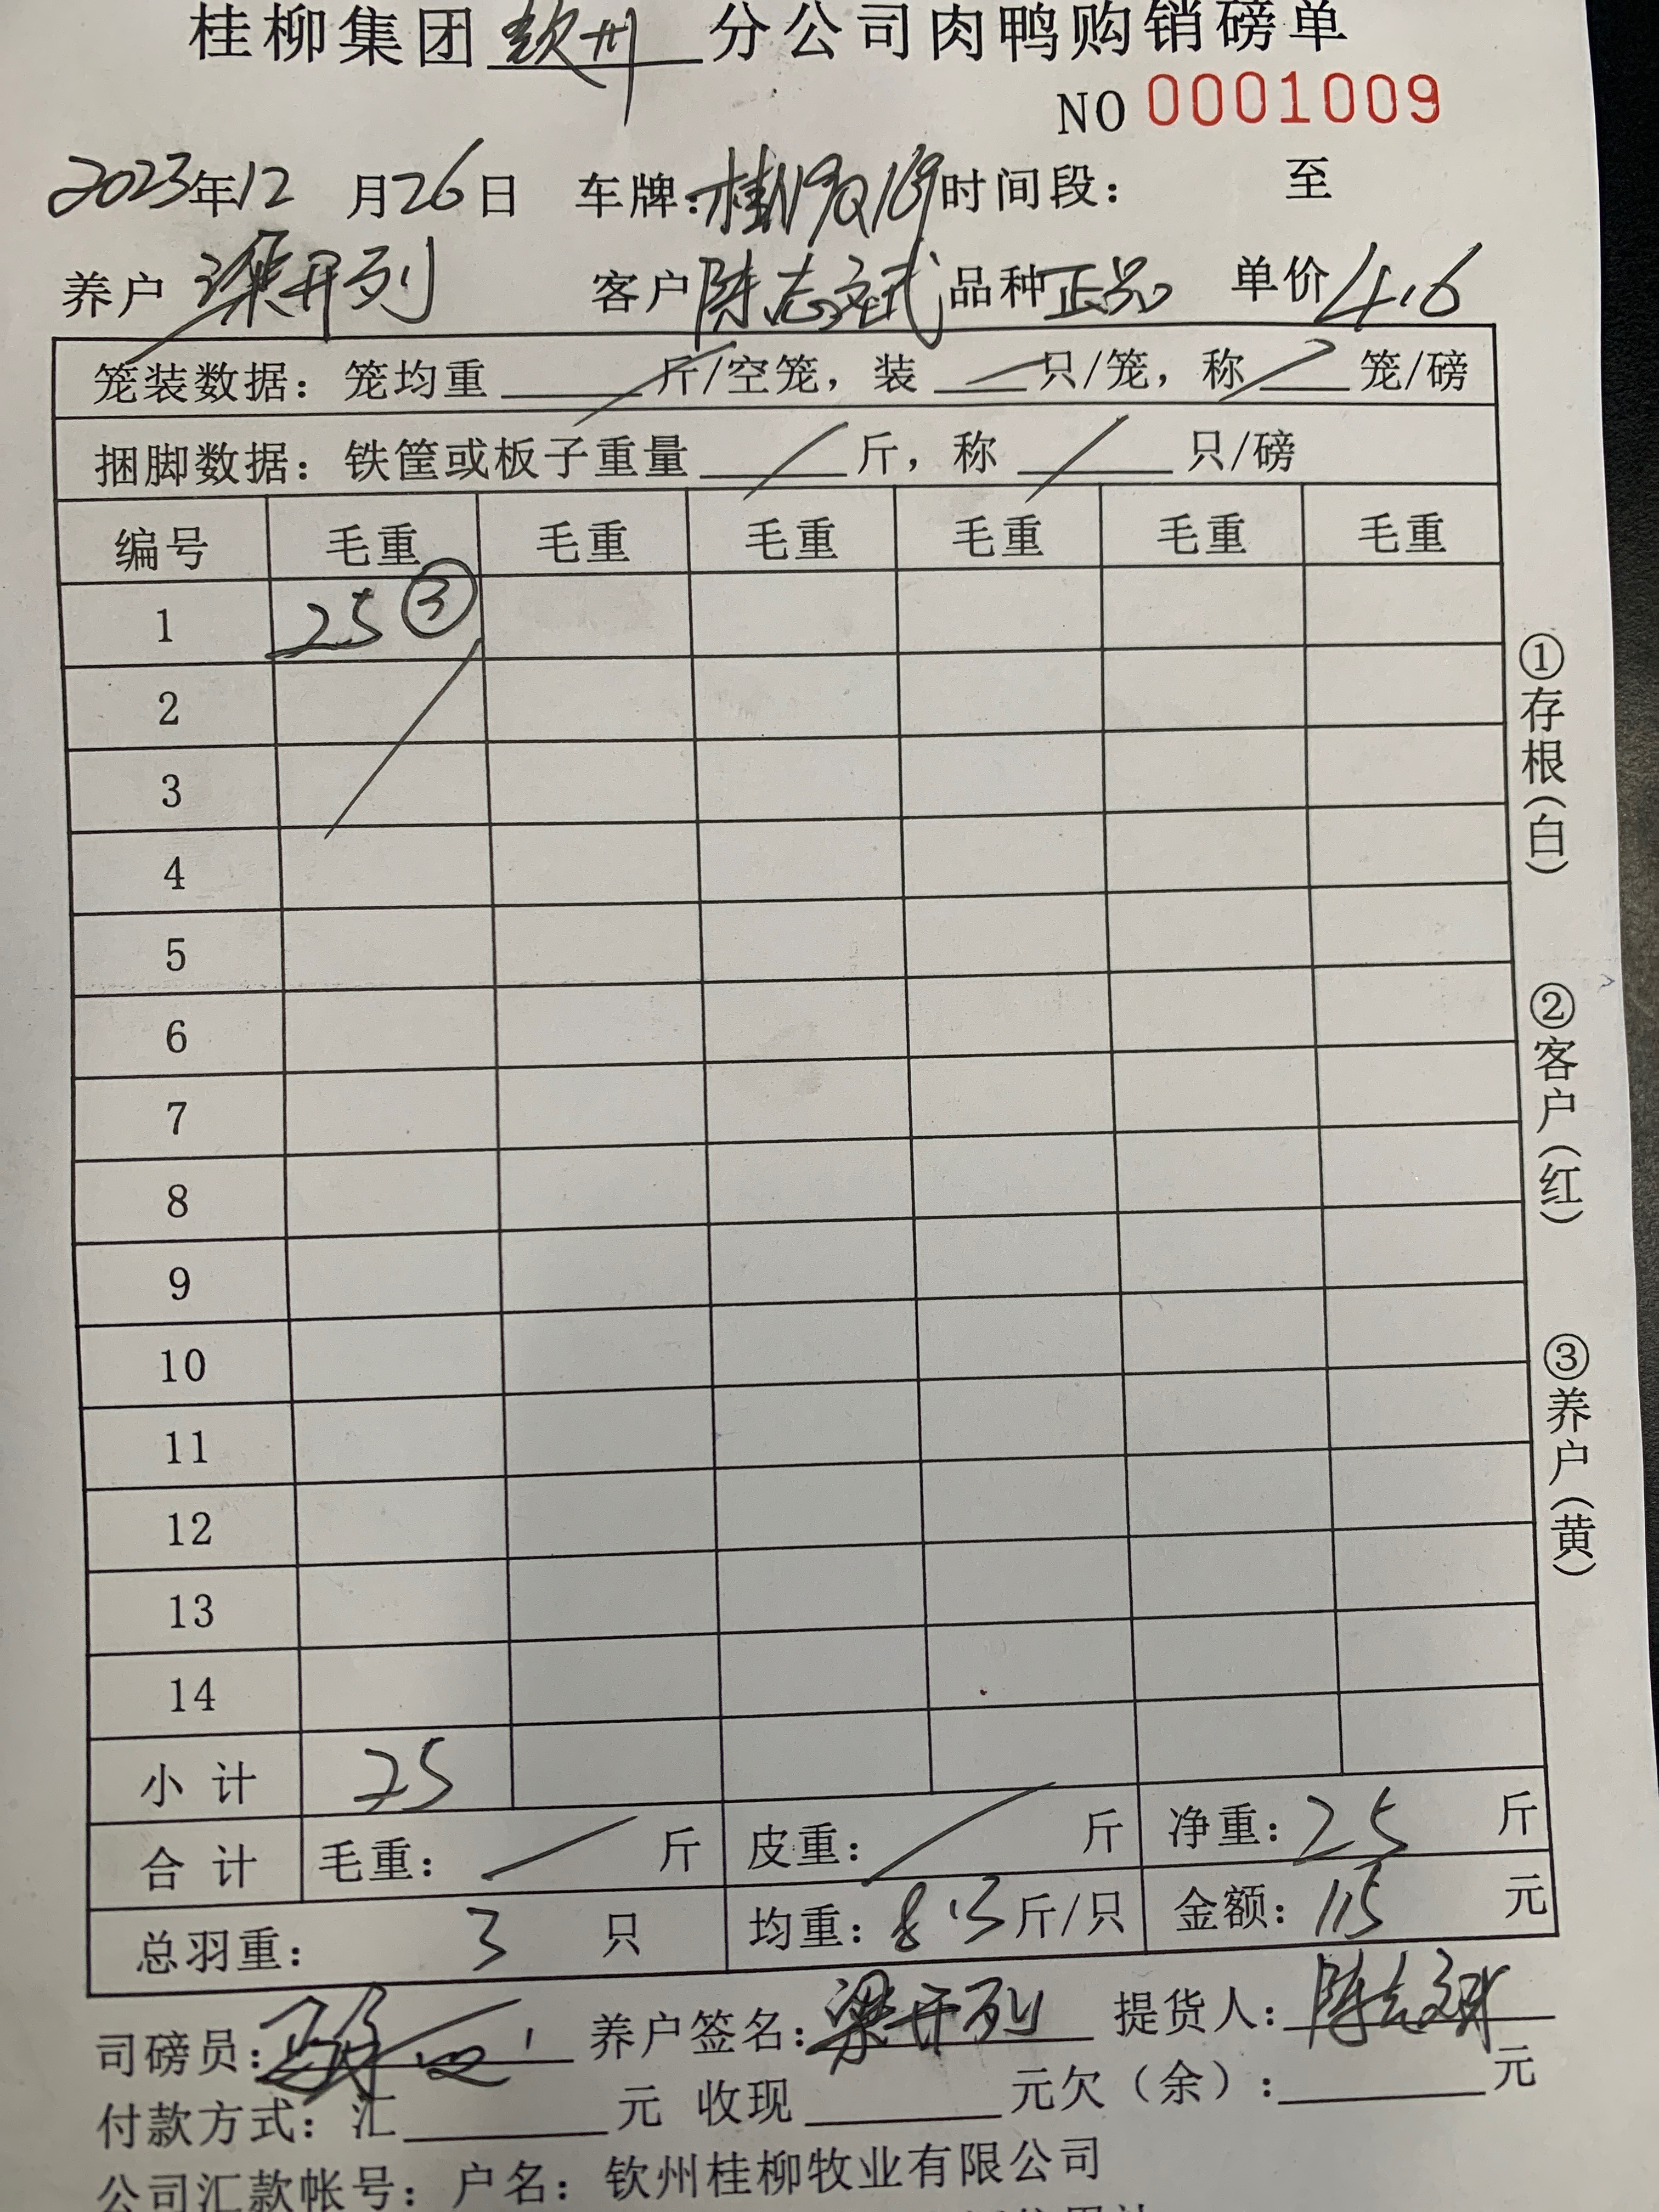 桂柳集团 钦州 分公司肉鸭购销磅单
NO 0001009
2023年12月26日 车牌:桂 时间段: 至
养户 梁开列 客户 陈志斌 品种 正品 单价 4.6
笼装数据: 笼均重 斤/空笼, 装 只/笼, 称 笼/磅
捆脚数据: 铁筐或板子重量 斤, 称 只/磅
编号 毛重 毛重 毛重 毛重 毛重 毛重
1 25 ③
2
3
4
5
6
7
8
9
10
11
12
13
14
小计 25
合计 毛重: 斤 皮重: 斤 净重: 25 斤
总羽重: 3 只 均重: 8.3 斤/只 金额: 115 元
司磅员: 养户签名: 梁开列 提货人: 陈志斌
付款方式: 汇 元 收现 元欠(余): 元
公司汇款帐号: 户名: 钦州桂柳牧业有限公司
①存根(白)
②客户(红)
③养户(黄)